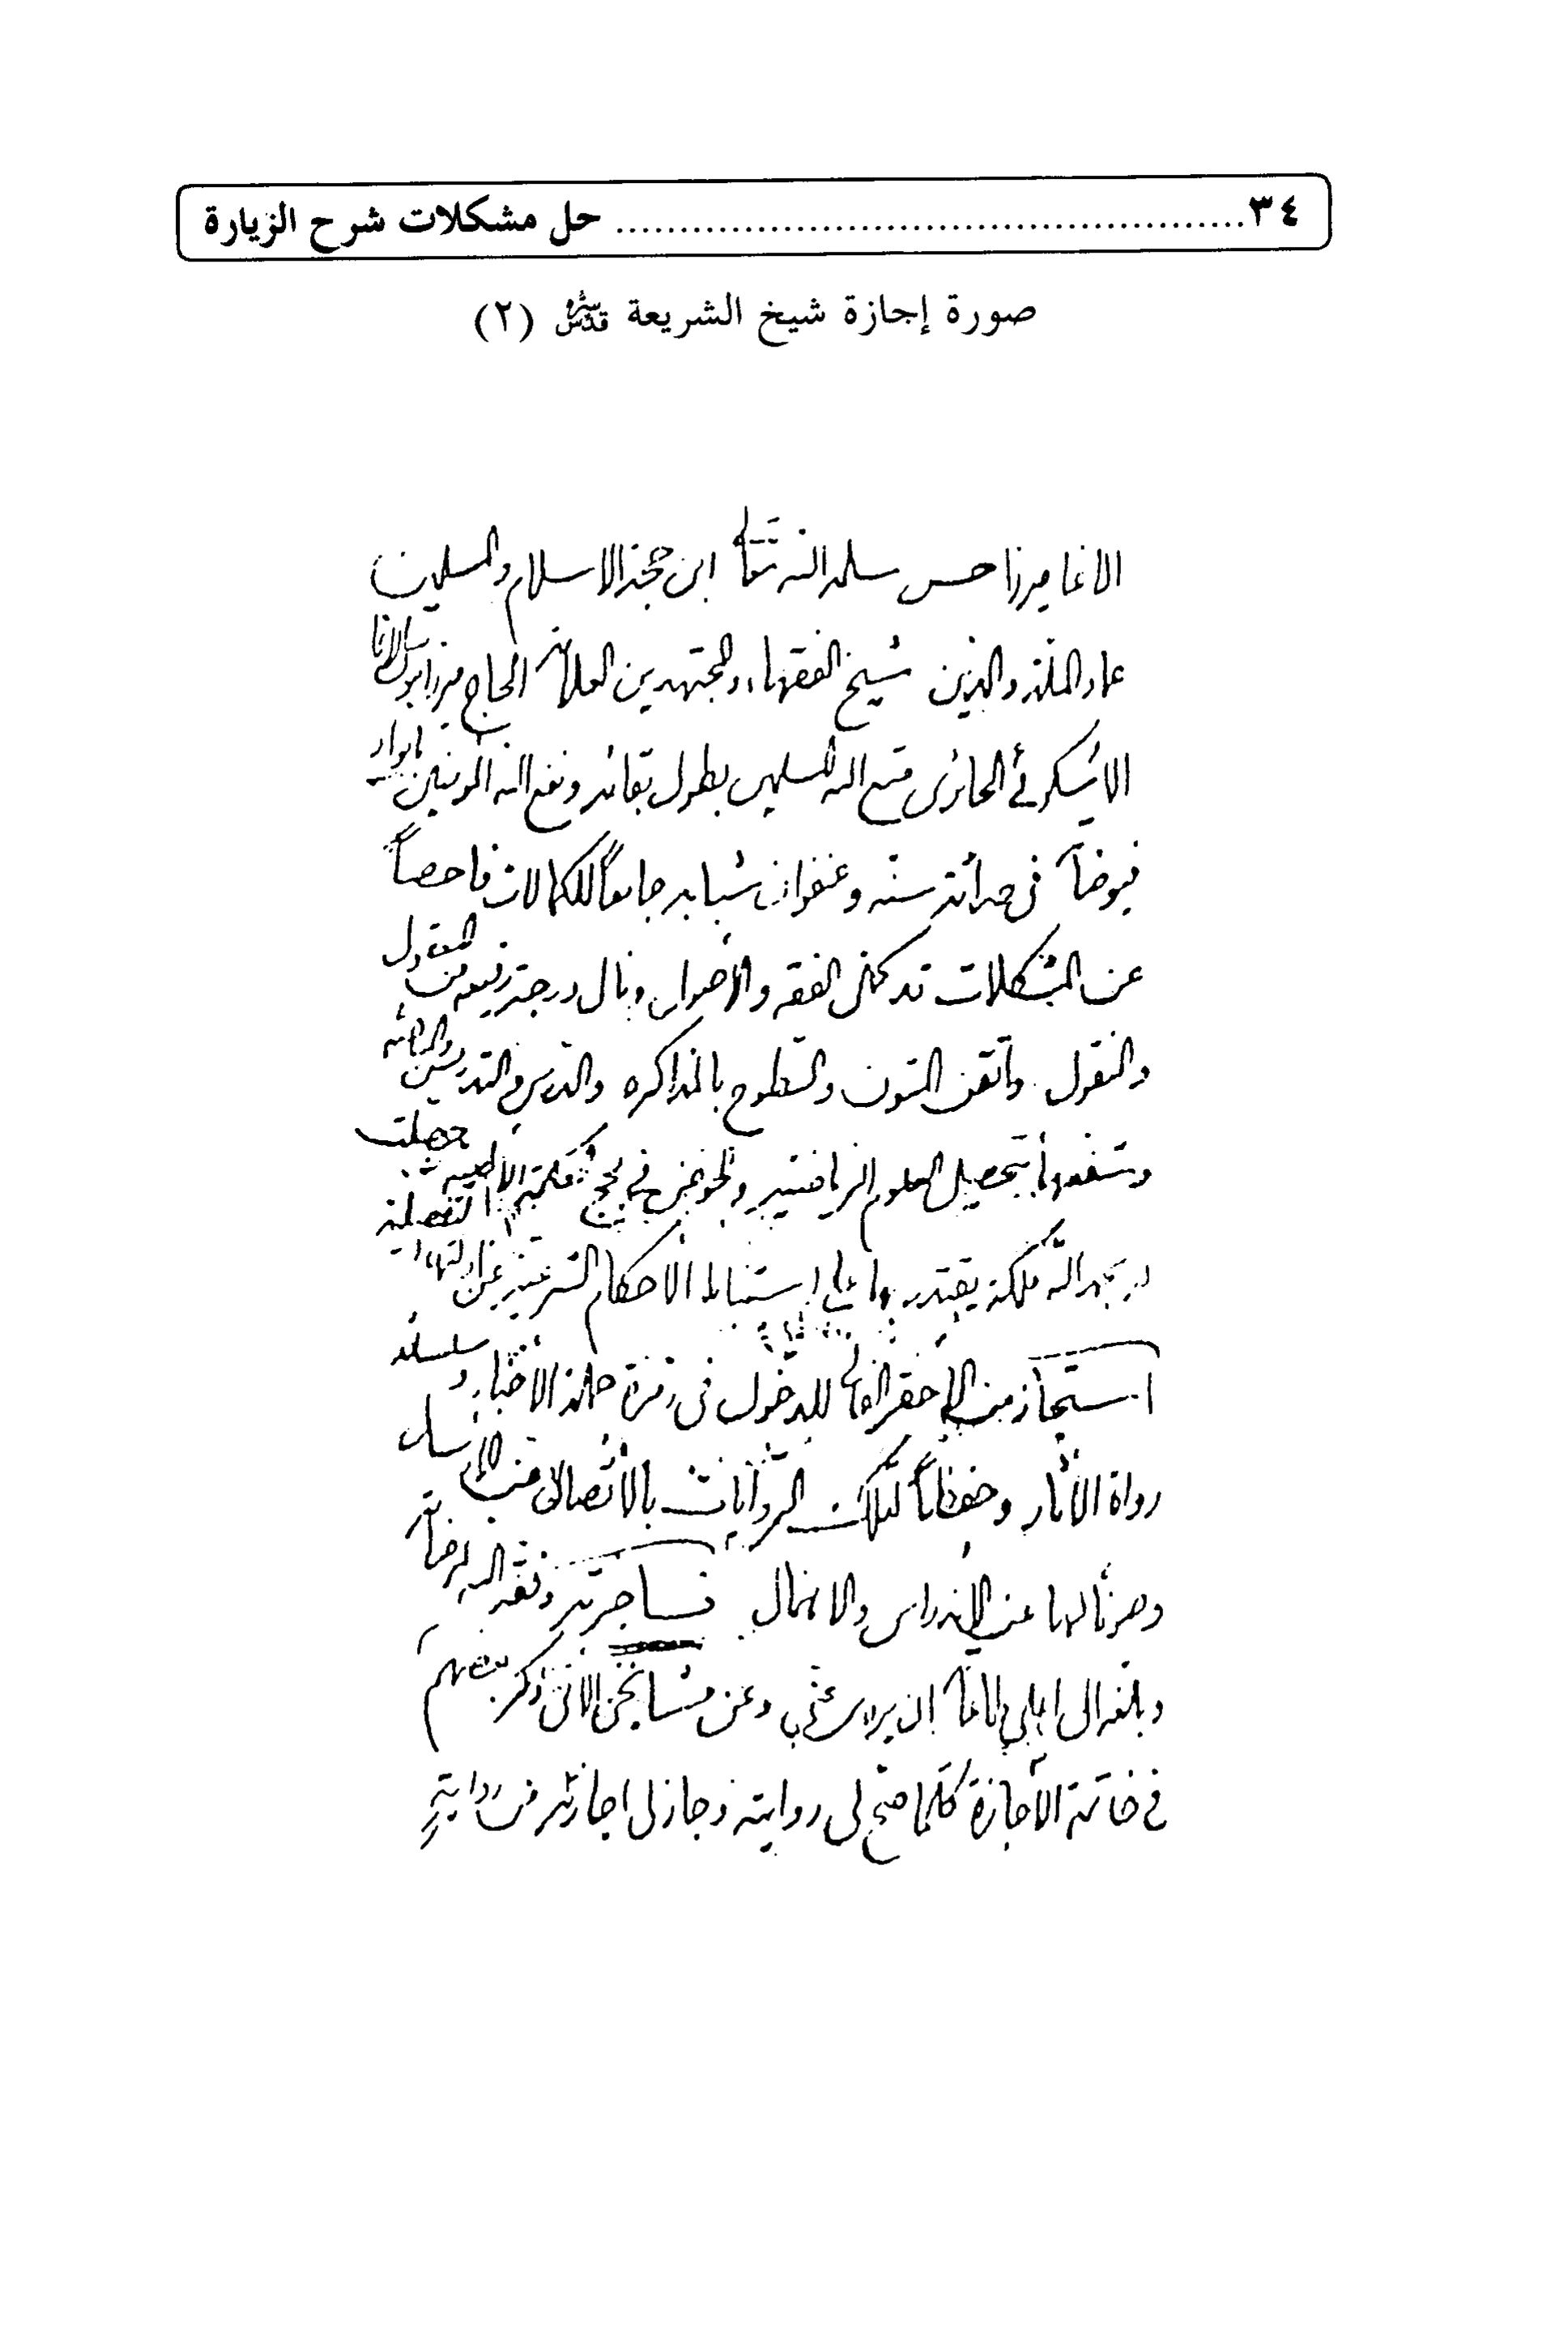 ٣٤ .......... حل مشكلات شرح الزيارة
صورة إجازة شيخ الشريعة قدس سره (٢)
الاغا ميرزا حسن سلمه الله تعالى ابن حجة الاسلام والمسلمين
عماد الملة والدين شيخ الفقهاء والمجتهدين العلامة الحاج ميرزا موسى الاغا
الاسكوئي الحائري متع الله المسلمين بطول بقائه ونفع الله المؤمنين بانوار
فيوضاته في حداثة سنه وعنفوان شبابه جامعاً للكمالات فاحصاً
عن المشكلات قد كمل الفقه والأصول ونال درجة رفيعة من المعقول
والمنقول واتقن المتون والسطوح بالمذاكره والدرس والتدريس والمباحثه
وشفعها بتحصيل العلوم الرياضية والخوض في لجج الحكمة الالهية حصلت
له بحمد الله ملكة يقتدر بها على استنباط الأحكام الشرعية عن ادلتها التفصيلية
استجاز من الأحقر الفاني للدخول في زمرة حملة الأخبار وسلسلة
رواة الآثار وحفظاً لتلك الروايات بالاتصال من الارسال
وصوناً لها عن الاندراس والاهمال فاجزته وفقه الله لمرضاته
وبلغه الى اعلى ان يروي عني وعن مشايخي الاتي ذكر بعضهم
في خاتمة الاجازة كلما صح لي روايته وجاز لي اجازته من رواية